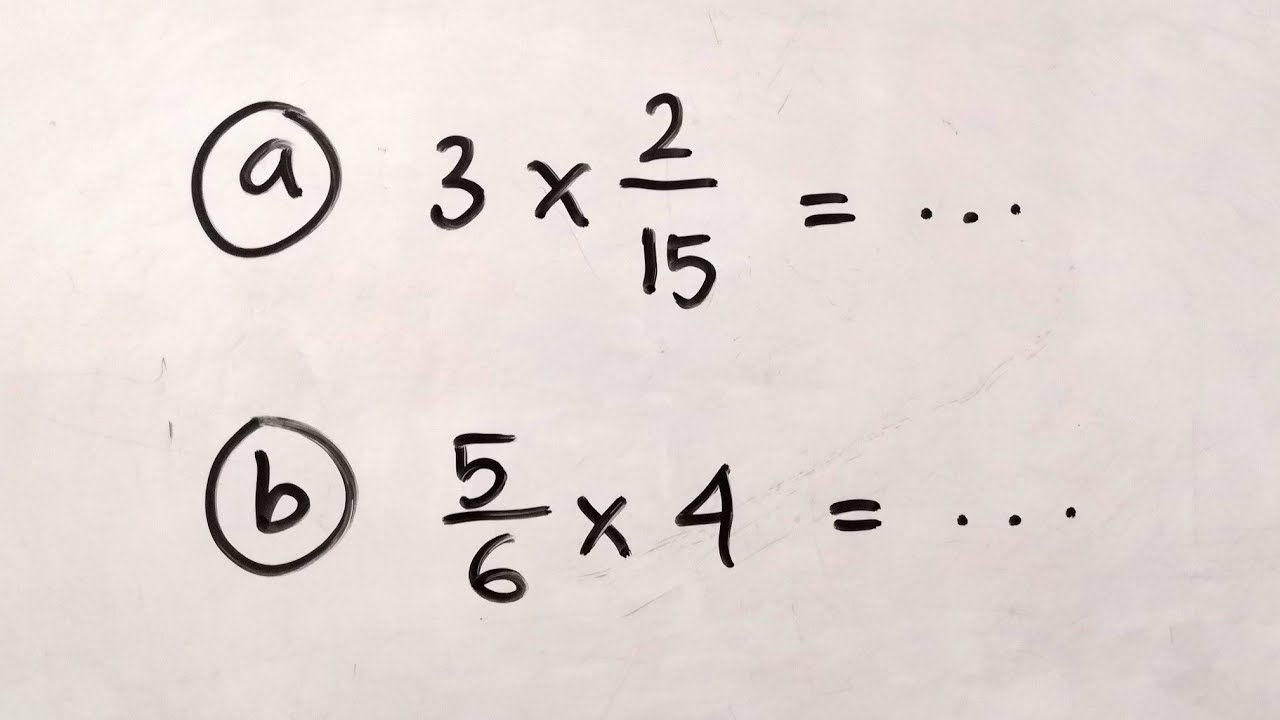 a 3 x 2/15 = ...
b 5/6 x 4 = ...